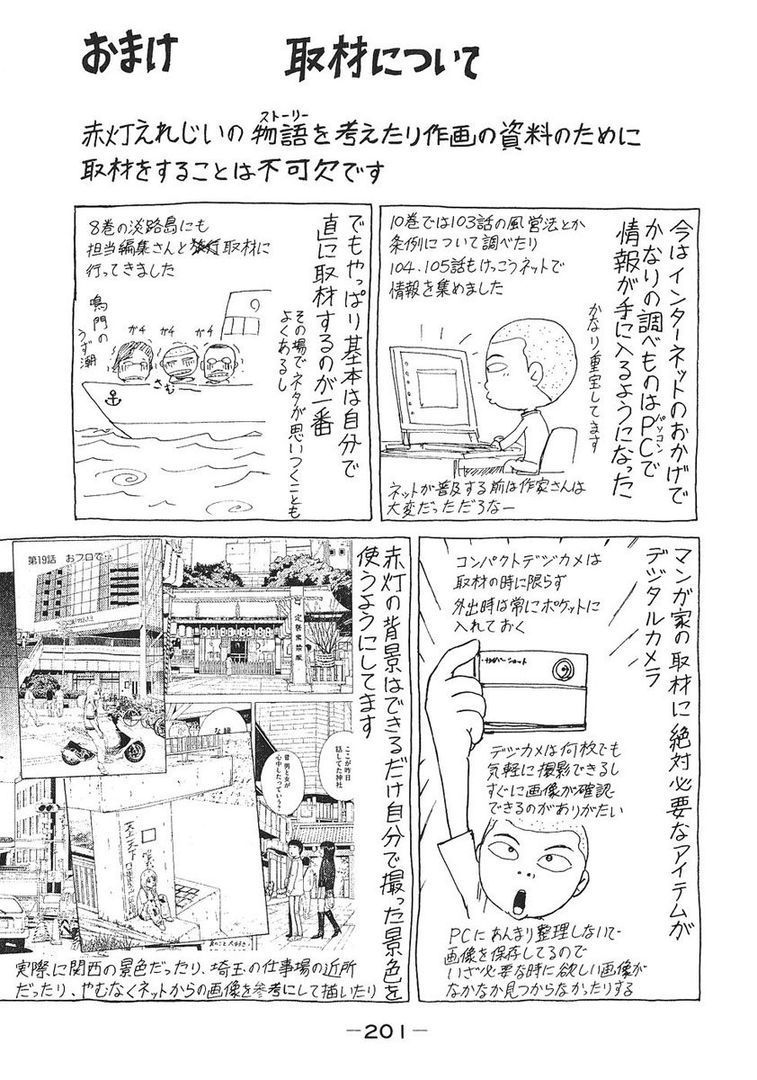 おまけ　取材について
赤灯えれじいの物語を考えたり作画の資料のために
ストーリー
取材をすることは不可欠です
今はインターネットのおかげで
かなりの調べものはPCで
パソコン
情報が手に入るようになった
かなり重宝してます
10巻では103話の風営法とか
条例について調べたり
104.105話もけっこうネットで
情報を集めました
ネットが普及する前は作家さんは
大変だっただろなー
でもやっぱり基本は自分で
直に取材するのが一番
その場でネタが思いつくことも
よくあるし
8巻の淡路島にも
担当編集さんと取材に
行ってきました
鳴門の
うず潮
カチ
カチ
カチ
さむ
マンガ家の取材に絶対必要なアイテムが
デジタルカメラ
コンパクトデジカメは
取材の時に限らず
外出時は常にポケットに
入れておく
デジカメは何枚でも
気軽に撮影できるし
すぐに画像が確認
できるのがありがたい
PCにあんまり整理しないで
画像を保存してるので
いざ必要な時に欲しい画像が
なかなか見つからなかったりする
赤灯の背景はできるだけ自分で撮った景色を
使うようにしてます
第19話　おフロで…
ここが昨日
話してた神社
昔 男と女が
心中したっていう
実際に関西の景色だったり、埼玉の仕事場の近所
だったり、やむなくネットからの画像を参考にして描いたり
—201—